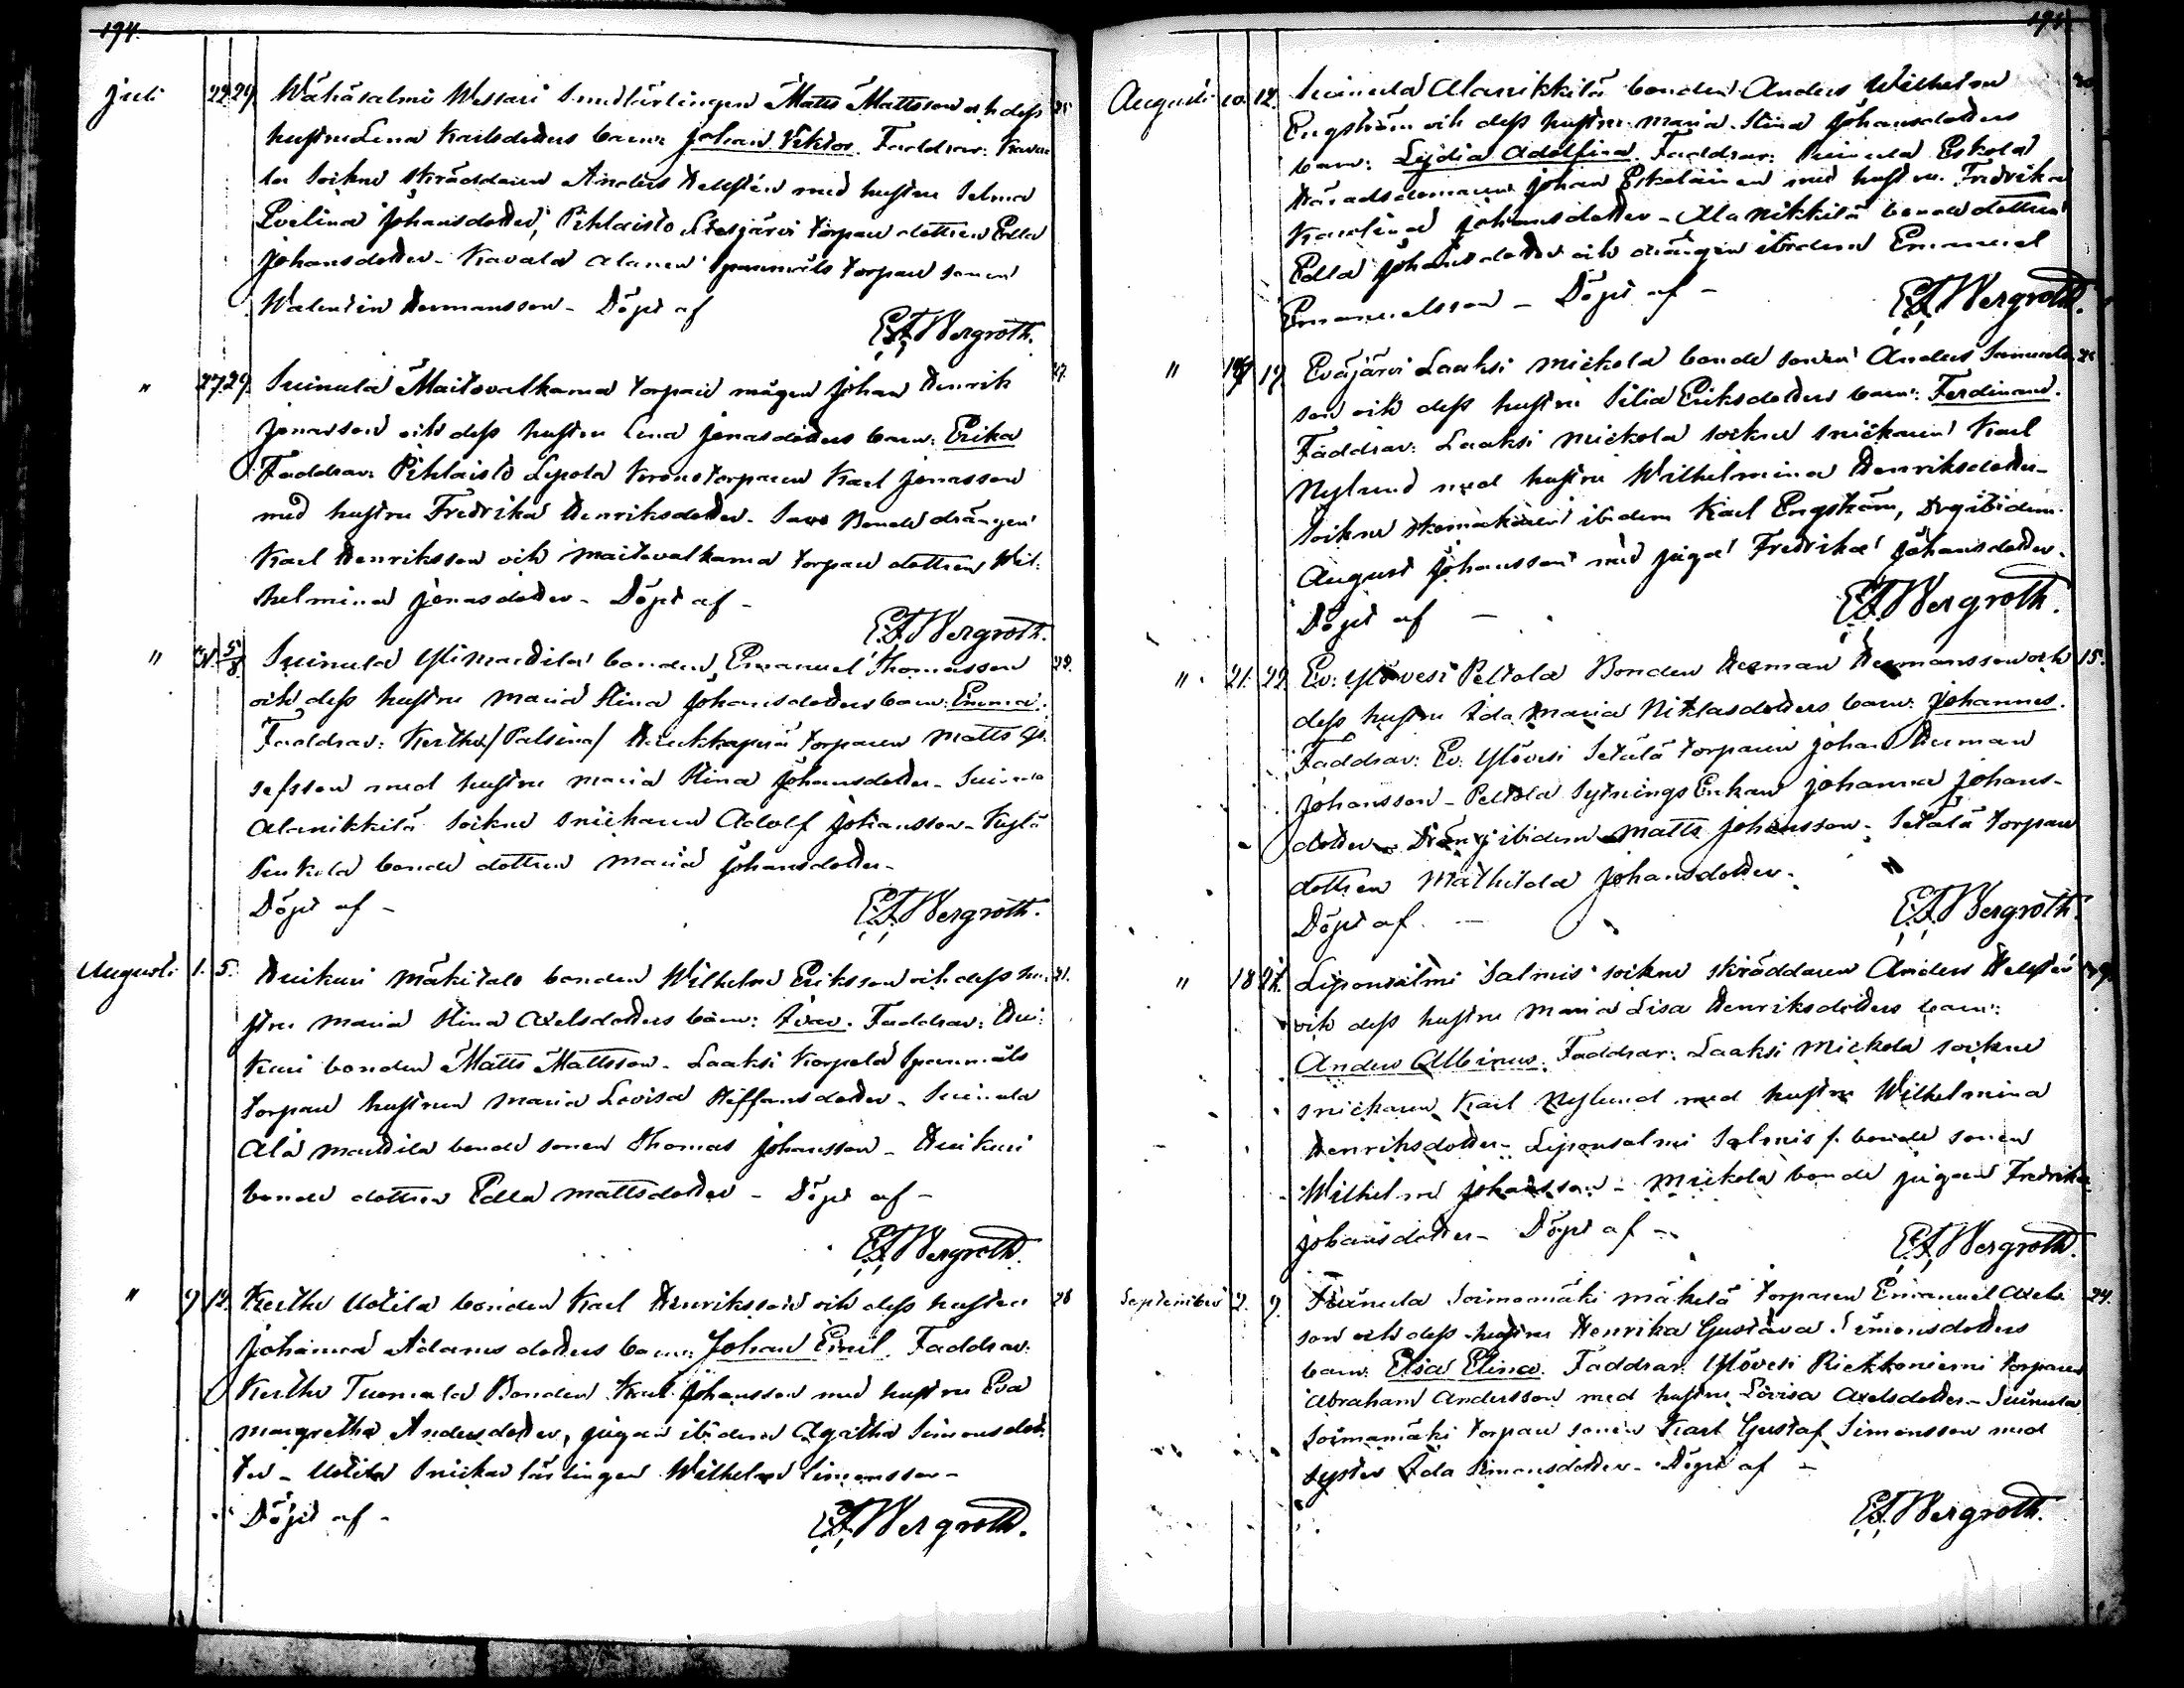 194.
Juli 22. 29. Wähäsalmi Wessari Smedlärlingen Matts Mattsson och dess 25
hustru Lena Karlsdotters barn: Johan Viktor. Faddrar: Kava
la Sockne skräddaren Anders Hellstén med hustru Selma
Evelina Johansdotter, Pihlaisto torpare dottren Edla
Johansdotter - Kavala Alanen Spannmåls torpare sonen
Walentin Hermansson - Döpt af
E.F. Bergroth.
" 27. 29. Suinula Maitovalkama torpare mågen Johan Henrik 27
Jonasson och dess hustru Lena Jonasdotters barn: Erika
Faddrar: Pihlaisto Lepola Kronotorparen Karl Jonasson
med hustru Fredrika Henriksdotter. Bonde drängen
Karl Henriksson och Maitovalkama torpare dottren Wil-
helmina Jonasdotter - Döpt af -
E.F. Bergroth.
" 5/8 Suinula Yli Mardila bonden Emanuel Thomasson 29.
och dess hustru Maria Stina Johansdotters barn: Emma.
Faddrar: Kertku /Palsina/ torparen Matts Jo-
sefsson med hustru Maria Stina Johansdotter - Suinula
Alanikkilä Sockne snickaren Adolf Johansson - Kylä
bonde dottren Maria Johansdotter -
Döpt af -
E.F. Bergroth.
Augusti 1. 5. Huikuri Mäkitalo bonden Wilhelm Eriksson och dess hu- 21.
stru Maria Stina Axelsdotters barn: Iivar. Faddrar: Hui-
kuri bonden Matts Mattsson - Laaksi Korpela Spannmåls
torpare hustrun Maria Lovisa Steffansdotter - Suinula
Ala Mardila bonde sonen Thomas Johansson - Huikuri
bonde dottren Edla Mattsdotter - Döpt af -
E.F. Bergroth.
" 9 12. Kertku Uotila bonden Karl Henriksson och dess hustru 28
Johanna Adamsdotters barn: Johan Emil. Faddrar:
Kertku Tuomala Bonden Karl Johansson med hustru Eva
Margretha Andersdotter, pigan ibidem Agatha Simonsdot-
ter - Uotila Snickar lärlingen Wilhelm Simonsson -
Döpt af -
E.F. Bergroth.
194
Augusti 10. 12. Suinula Alanikkilä bonden Anders Wilhelm 20
Engström och dess hustru Maria Stina Johansdotters
barn: Lydia Adolfina. Faddrar: Suinula Eskola
Häradsdomaren Johan Eskolainen med hustru Fredrika
Karolina Johansdotter - Ala Nikkilä bonde dottren
Edla Johansdotter och drängen ibidem Emanuel
Emanuelsson - Döpt af -
E.F. Bergroth.
" 17 Eväjärvi Laaksi Mickola bonde sonen Anders Samuels-
son och dess hustru Silia Eriksdotters barn: Ferdinand.
Faddrar: Laaksi Mickola sockne snickaren Karl
Nylund med hustru Wilhelmina Henriksdotter -
Sockne skomakaren ibidem Karl Engström, Drg ibidem
August Johansson med piga Fredrika Johansdotter.
Döpt af -
E.F. Bergroth.
" 21. 22. Ev: Ylövesi Peltola Bonden Herman Hermansson och 15.
dess hustru Ida Maria Niklasdotters barn: Johannes.
Faddrar: Ev: Ylövesi Setälä torparen Johan Herman
Johansson - Peltola Sytnings Enkan Johanna Johans-
dotter - Dräng ibidem Matts Johansson - Setälä torpare
dottren Mathilda Johansdotter -
Döpt af -
E.F. Bergroth.
" 18 22. Liponsalmi Salmis sockne skräddaren Anders Hellstén 29.
och dess hustru Maria Lisa Henriksdotters barn:
Anders Albinus. Faddrar: Laaksi Mickola sockne
snickaren Karl Nylund med hustru Wilhelmina
Henriksdotter - Liponsalmi Salmis f. bonde sonen
Wilhelm Johansson - Mickola bonde pigan Fredrika
Johansdotter - Döpt af -
E.F. Bergroth.
September 2. 9. Suinula Soimamäki Mäkelä torparen Emanuel Axels- 24.
son och dess hustru Henrika Gustava Simonsdotters
barn: Elsa Elina. Faddrar: Ylövesi Riekkoniemi torparen
Abraham Andersson med hustru Lovisa Axelsdotter - Suinula
Soimamäki torpare sonen Karl Gustaf Simonsson med
syster Ida Simonsdotter - Döpt af -
E.F. Bergroth.